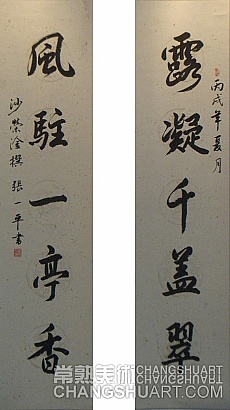 丙戌年夏月
露凝千盖翠
風駐一亭香
沙榮淦撰 張一平書
常熟美術 CHANGSHUART